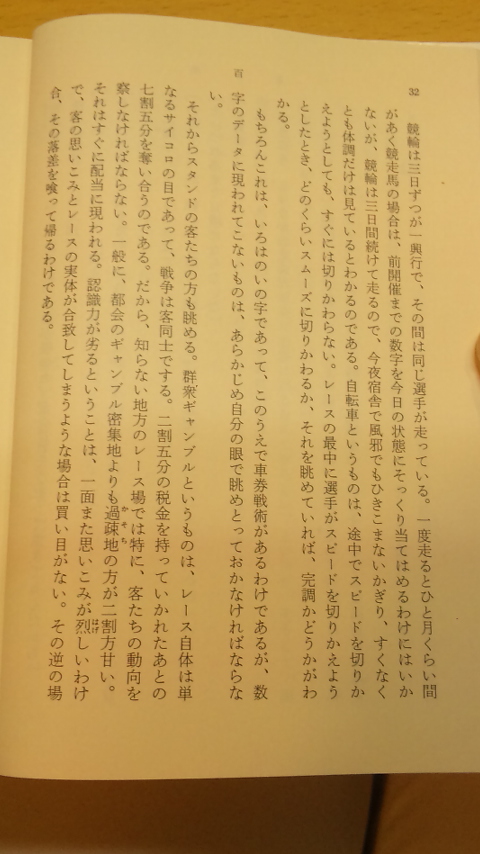 32
百
競輪は三日ずつが一興行で、その間は同じ選手が走っている。一度走るとひと月くらい間
があく競走馬の場合は、前開催までの数字を今日の状態にそっくり当てはめるわけにはいか
ないが、競輪は三日間続けて走るので、今夜宿舎で風邪でもひきこまないかぎり、すくなく
とも体調だけは見ているとわかるのである。自転車というものは、途中でスピードを切りか
えようとしても、すぐには切りかわらない。レースの最中に選手がスピードを切りかえよう
としたとき、どのくらいスムーズに切りかわるか、それを眺めていれば、完調かどうかがわ
かる。
もちろんこれは、いろはのいの字であって、このうえで車券戦術があるわけであるが、数
字のデータに現われてこないものは、あらかじめ自分の眼で眺めとっておかなければならな
い。
それからスタンドの客たちの方も眺める。群衆ギャンブルというものは、レース自体は単
なるサイコロの目であって、戦争は客同士でする。二割五分の税金を持っていかれたあとの
七割五分を奪い合うのである。だから、知らない地方のレース場では特に、客たちの動向を
察しなければならない。一般に、都会のギャンブル密集地よりも過疎地の方が二割方甘い。
それはすぐに配当に現われる。認識力が劣るということは、一面また思いこみが烈しいわけ
で、客の思いこみとレースの実体が合致してしまうような場合は買い目がない。その逆の場
合、その落差を喰って帰るわけである。